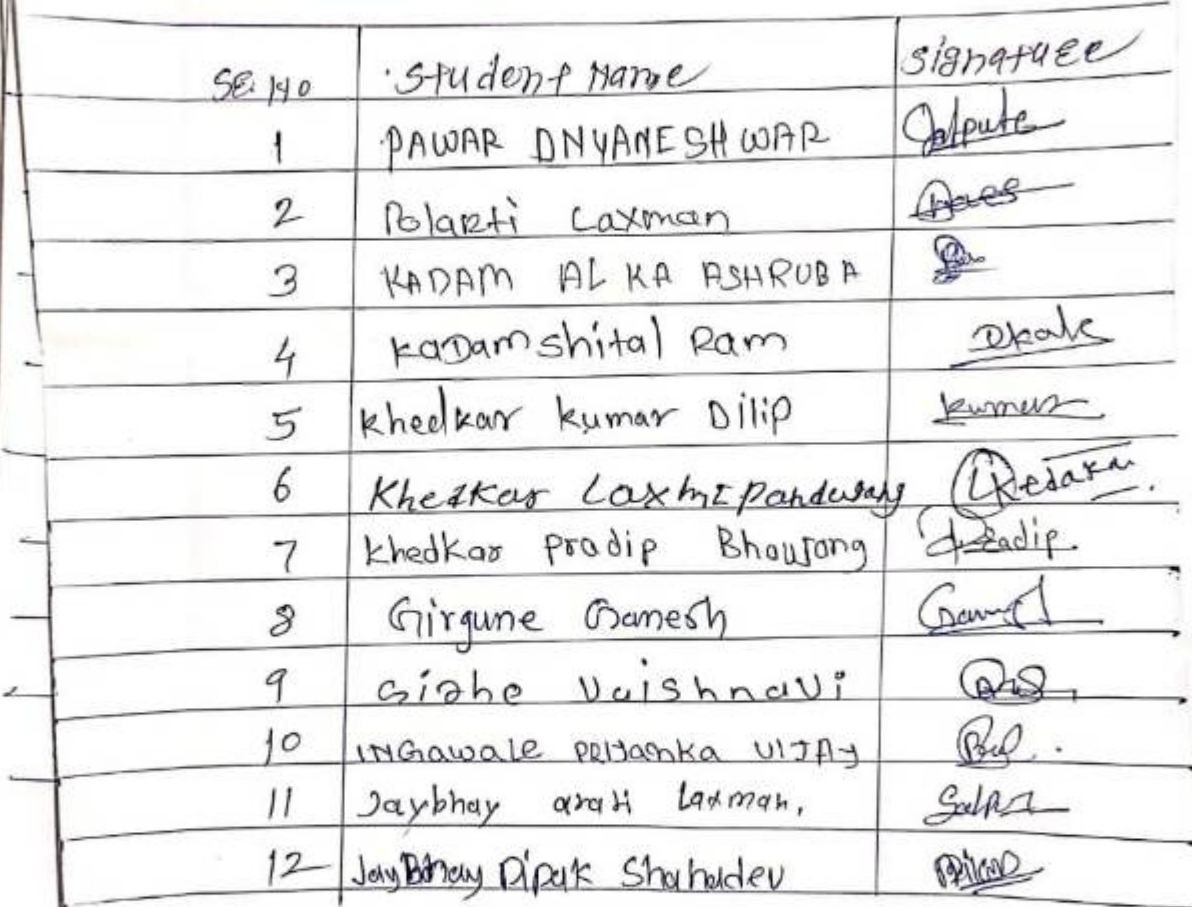 SE. NO Student Name Signature
1 PAWAR DNYANESHWAR
2 Polarti Laxman
3 KADAM ALKA ASHRUBA
4 KaDam shital Ram Dkale
5 Khedkar kumar Dilip kumar
6 Khedkar Laxmi pandurang
7 Khedkar pradip Bhaurang Pradip.
8 Girgune Ganesh
9 Gidhe Vaishnavi
10 INGawale PRIYanka VIJAy
11 Jaybhay arati Laxman,
12 JayBhay Dipak Shahadev